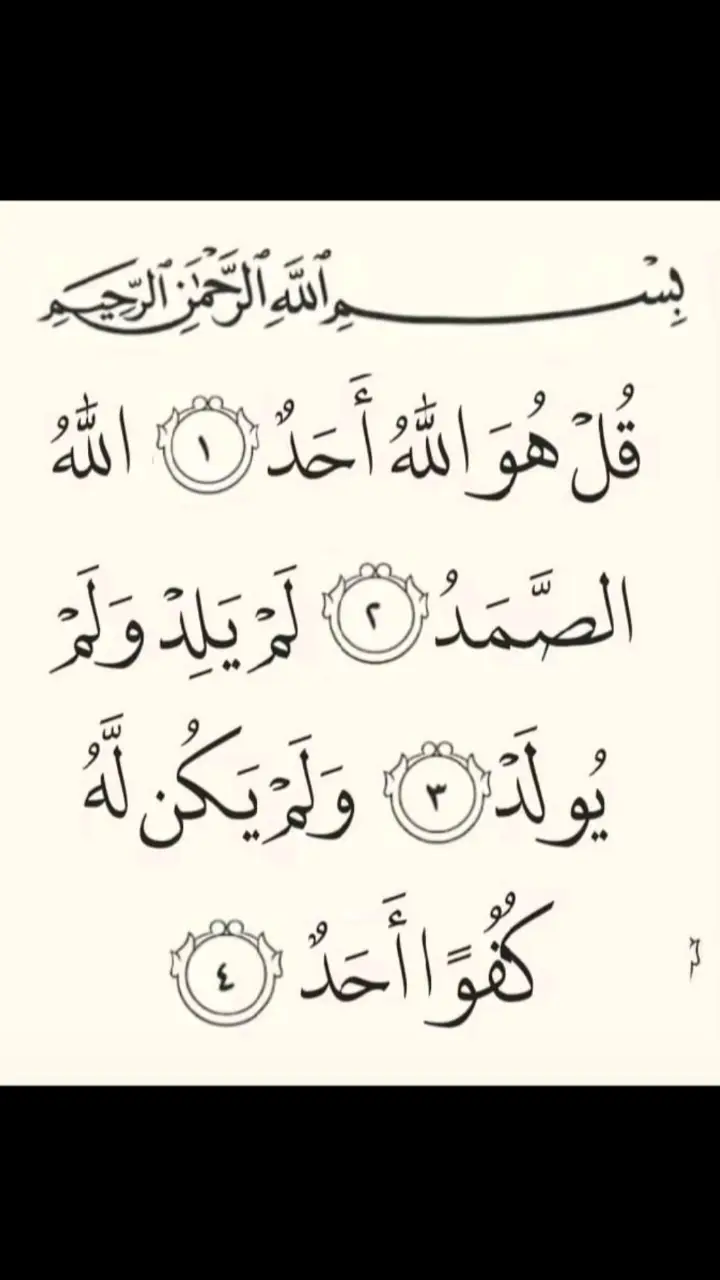 بِسْمِ ٱللَّهِ ٱلرَّحْمَٰنِ ٱلرَّحِيمِ
قُلْ هُوَ اللَّهُ أَحَدٌ ١ اللَّهُ
الصَّمَدُ ٢ لَمْ يَلِدْ وَلَمْ
يُولَدْ ٣ وَلَمْ يَكُن لَّهُ
كُفُوًا أَحَدٌ ٤